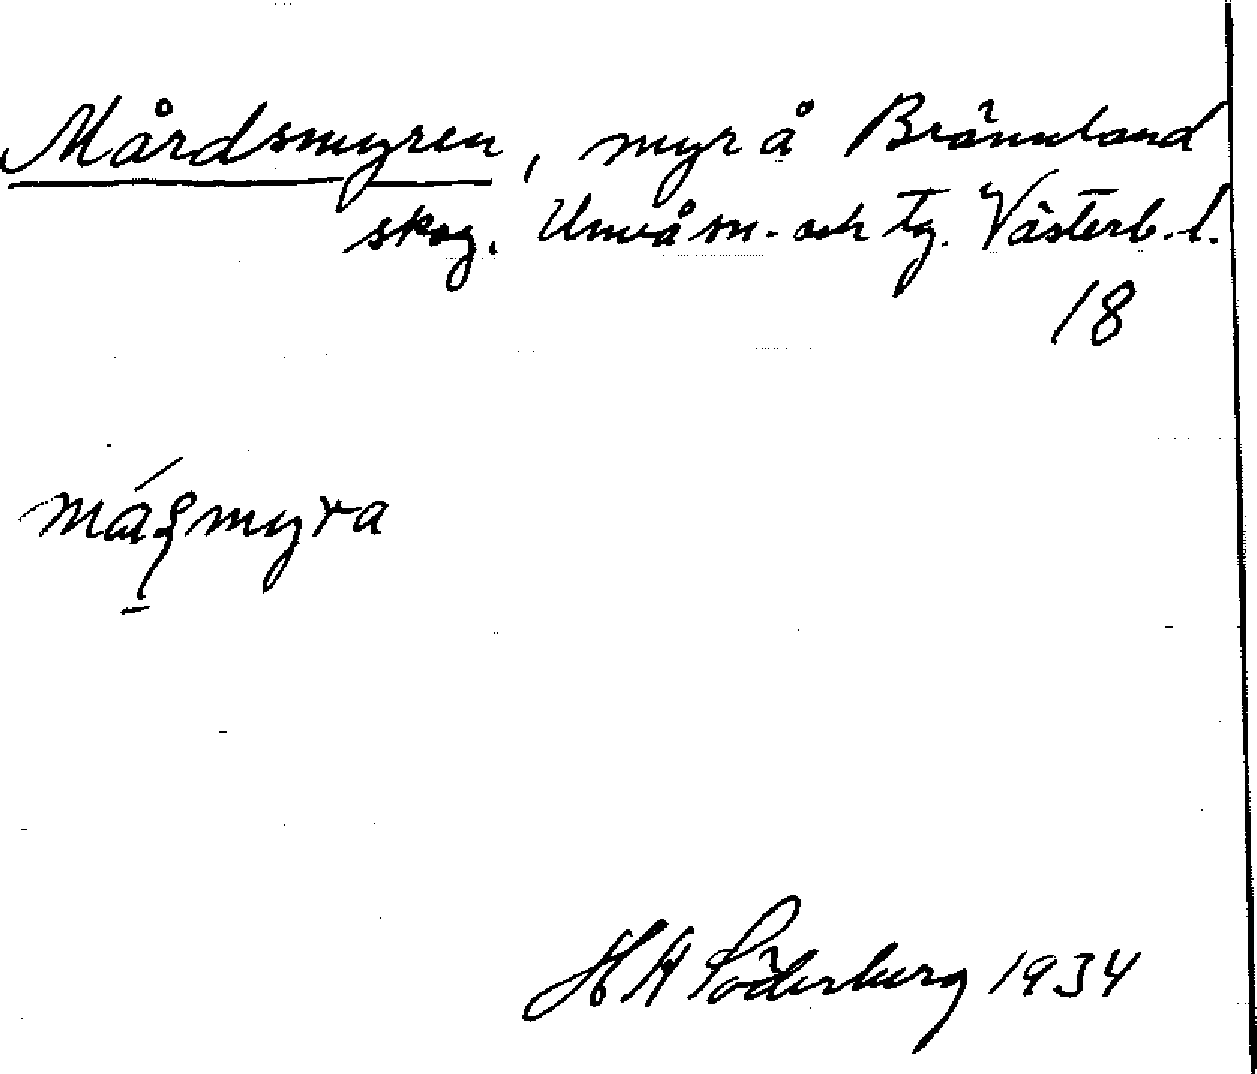 Mårdsmyren, myr å Brännland
skog. Umeå sn. och tg. Västerb. l.
18
máʂmyra
H A Söderberg 1934